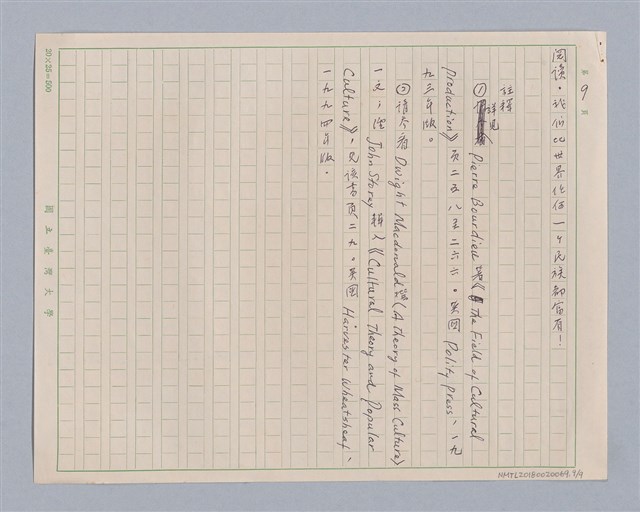 第 9 頁
閱讀，我们比世界任何一个民族都富有！
註釋
① 詳見 Pierre Bourdieu 《The Field of Cultural
Production》頁二五八至二六六。英国 Polity Press、一九
九三年版。
② 請参看 Dwight Macdonald 〈A Theory of Mass Culture〉
一文，John Storey 輯入《Cultural Theory and Popular
Culture》，見該書頁二九。英国 Harvester Wheatsheaf、
一九九四年版。
20×25=500
國立臺灣大學
NMTL20180020069.9/9